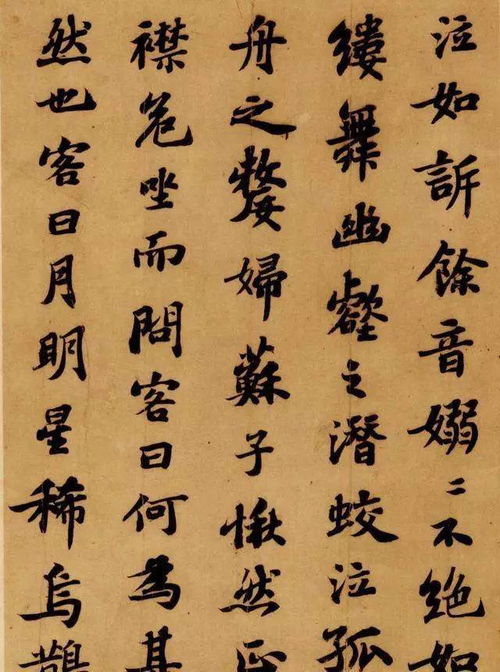 泣如訴餘音嫋〻不絶如
縷舞幽壑之潛蛟泣孤
舟之嫠婦蘇子愀然正
襟危坐而問客曰何為其
然也客曰月明星稀烏鵲